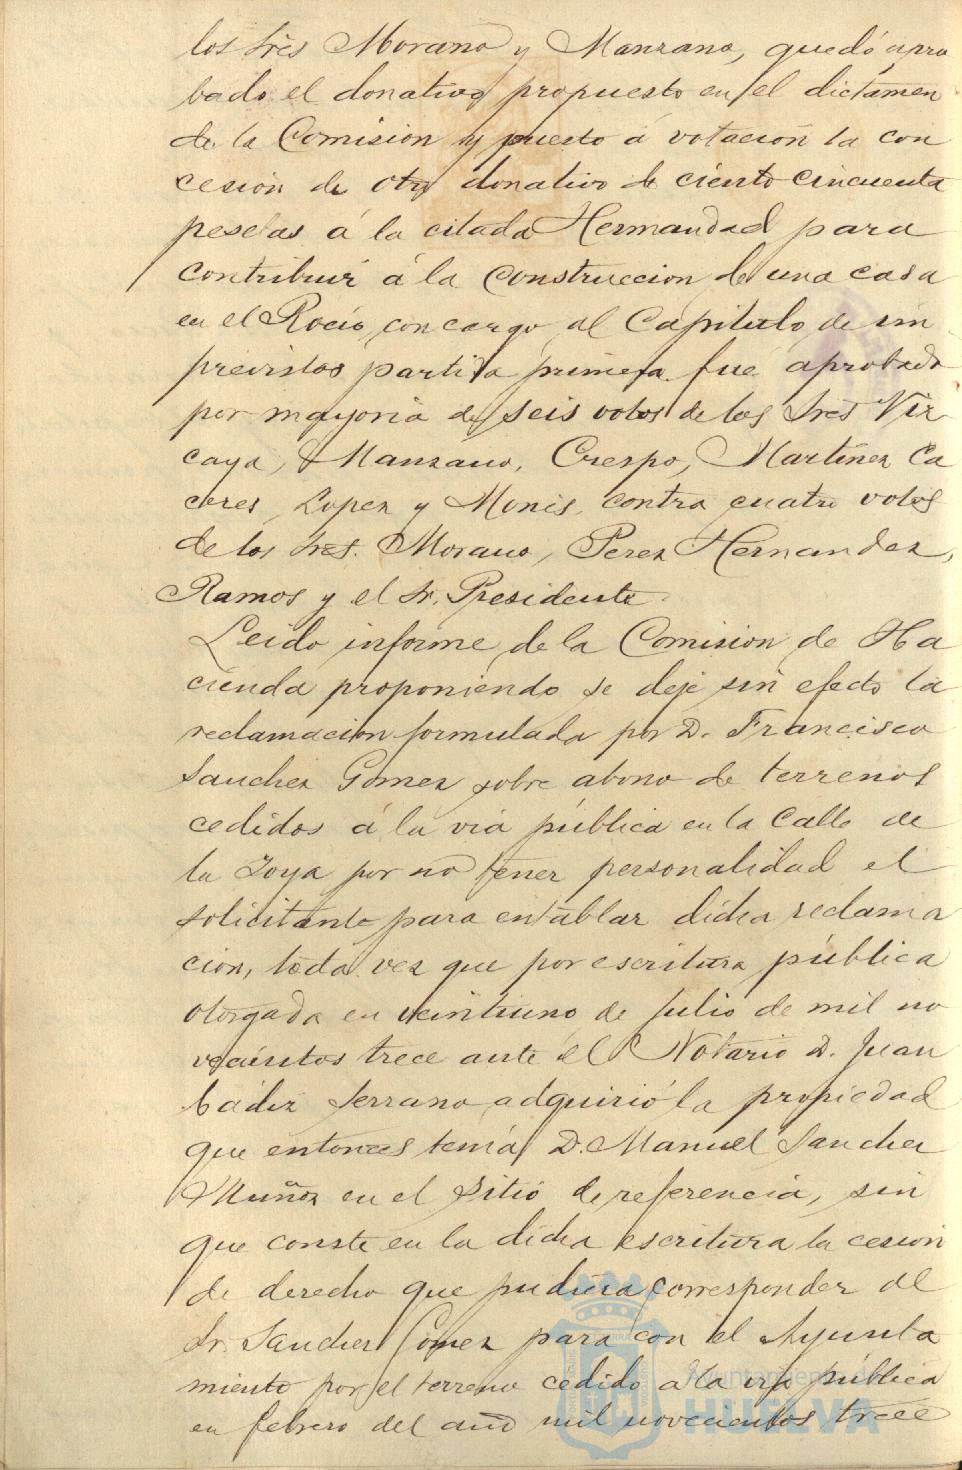 los Sres Morano y Manzano, quedó apro
bado el donativo propuesto en el dictamen
de la Comision y puesto á votacion la con
cesión de otro donativo de ciento cincuenta
pesetas á la citada Hermandad para
contribuir á la construccion de una casa
en el Rocío, con cargo al Capitulo de im
previstos partida primera fué aprobado
por mayoria de seis votos de los Sres Viz
caya, Manzano, Crespo, Martinez Ca
ceres, Lopez y Monis, contra cuatro votos
de los Sres. Morano, Perez Hernandez,
Ramos y el Sr. Presidente.
Leido informe de la Comision de Ha
cienda proponiendo se deje sin efecto la
reclamacion formulada por D. Francisco
Sanchez Gomez sobre abono de terrenos
cedidos á la via pública en la Calle de
la Joya por no tener personalidad el
solicitante para entablar dicha reclama
cion, toda vez que por escritura pública
otorgada en veintiuno de Julio de mil no
vecientos trece ante el Notario D. Juan
Cádiz Serrano, adquirió la propiedad
que entonces tenia D. Manuel Sanchez
Muñoz en el sitio de referencia, sin
que conste en la dicha escritura la cesion
de derecho que pudiera corresponder al
Sr. Sanchez Gomez para con el Ayunta
miento por el terreno cedido á la via pública
en febrero del año mil novecientos trece
Ayuntamiento de
HUELVA